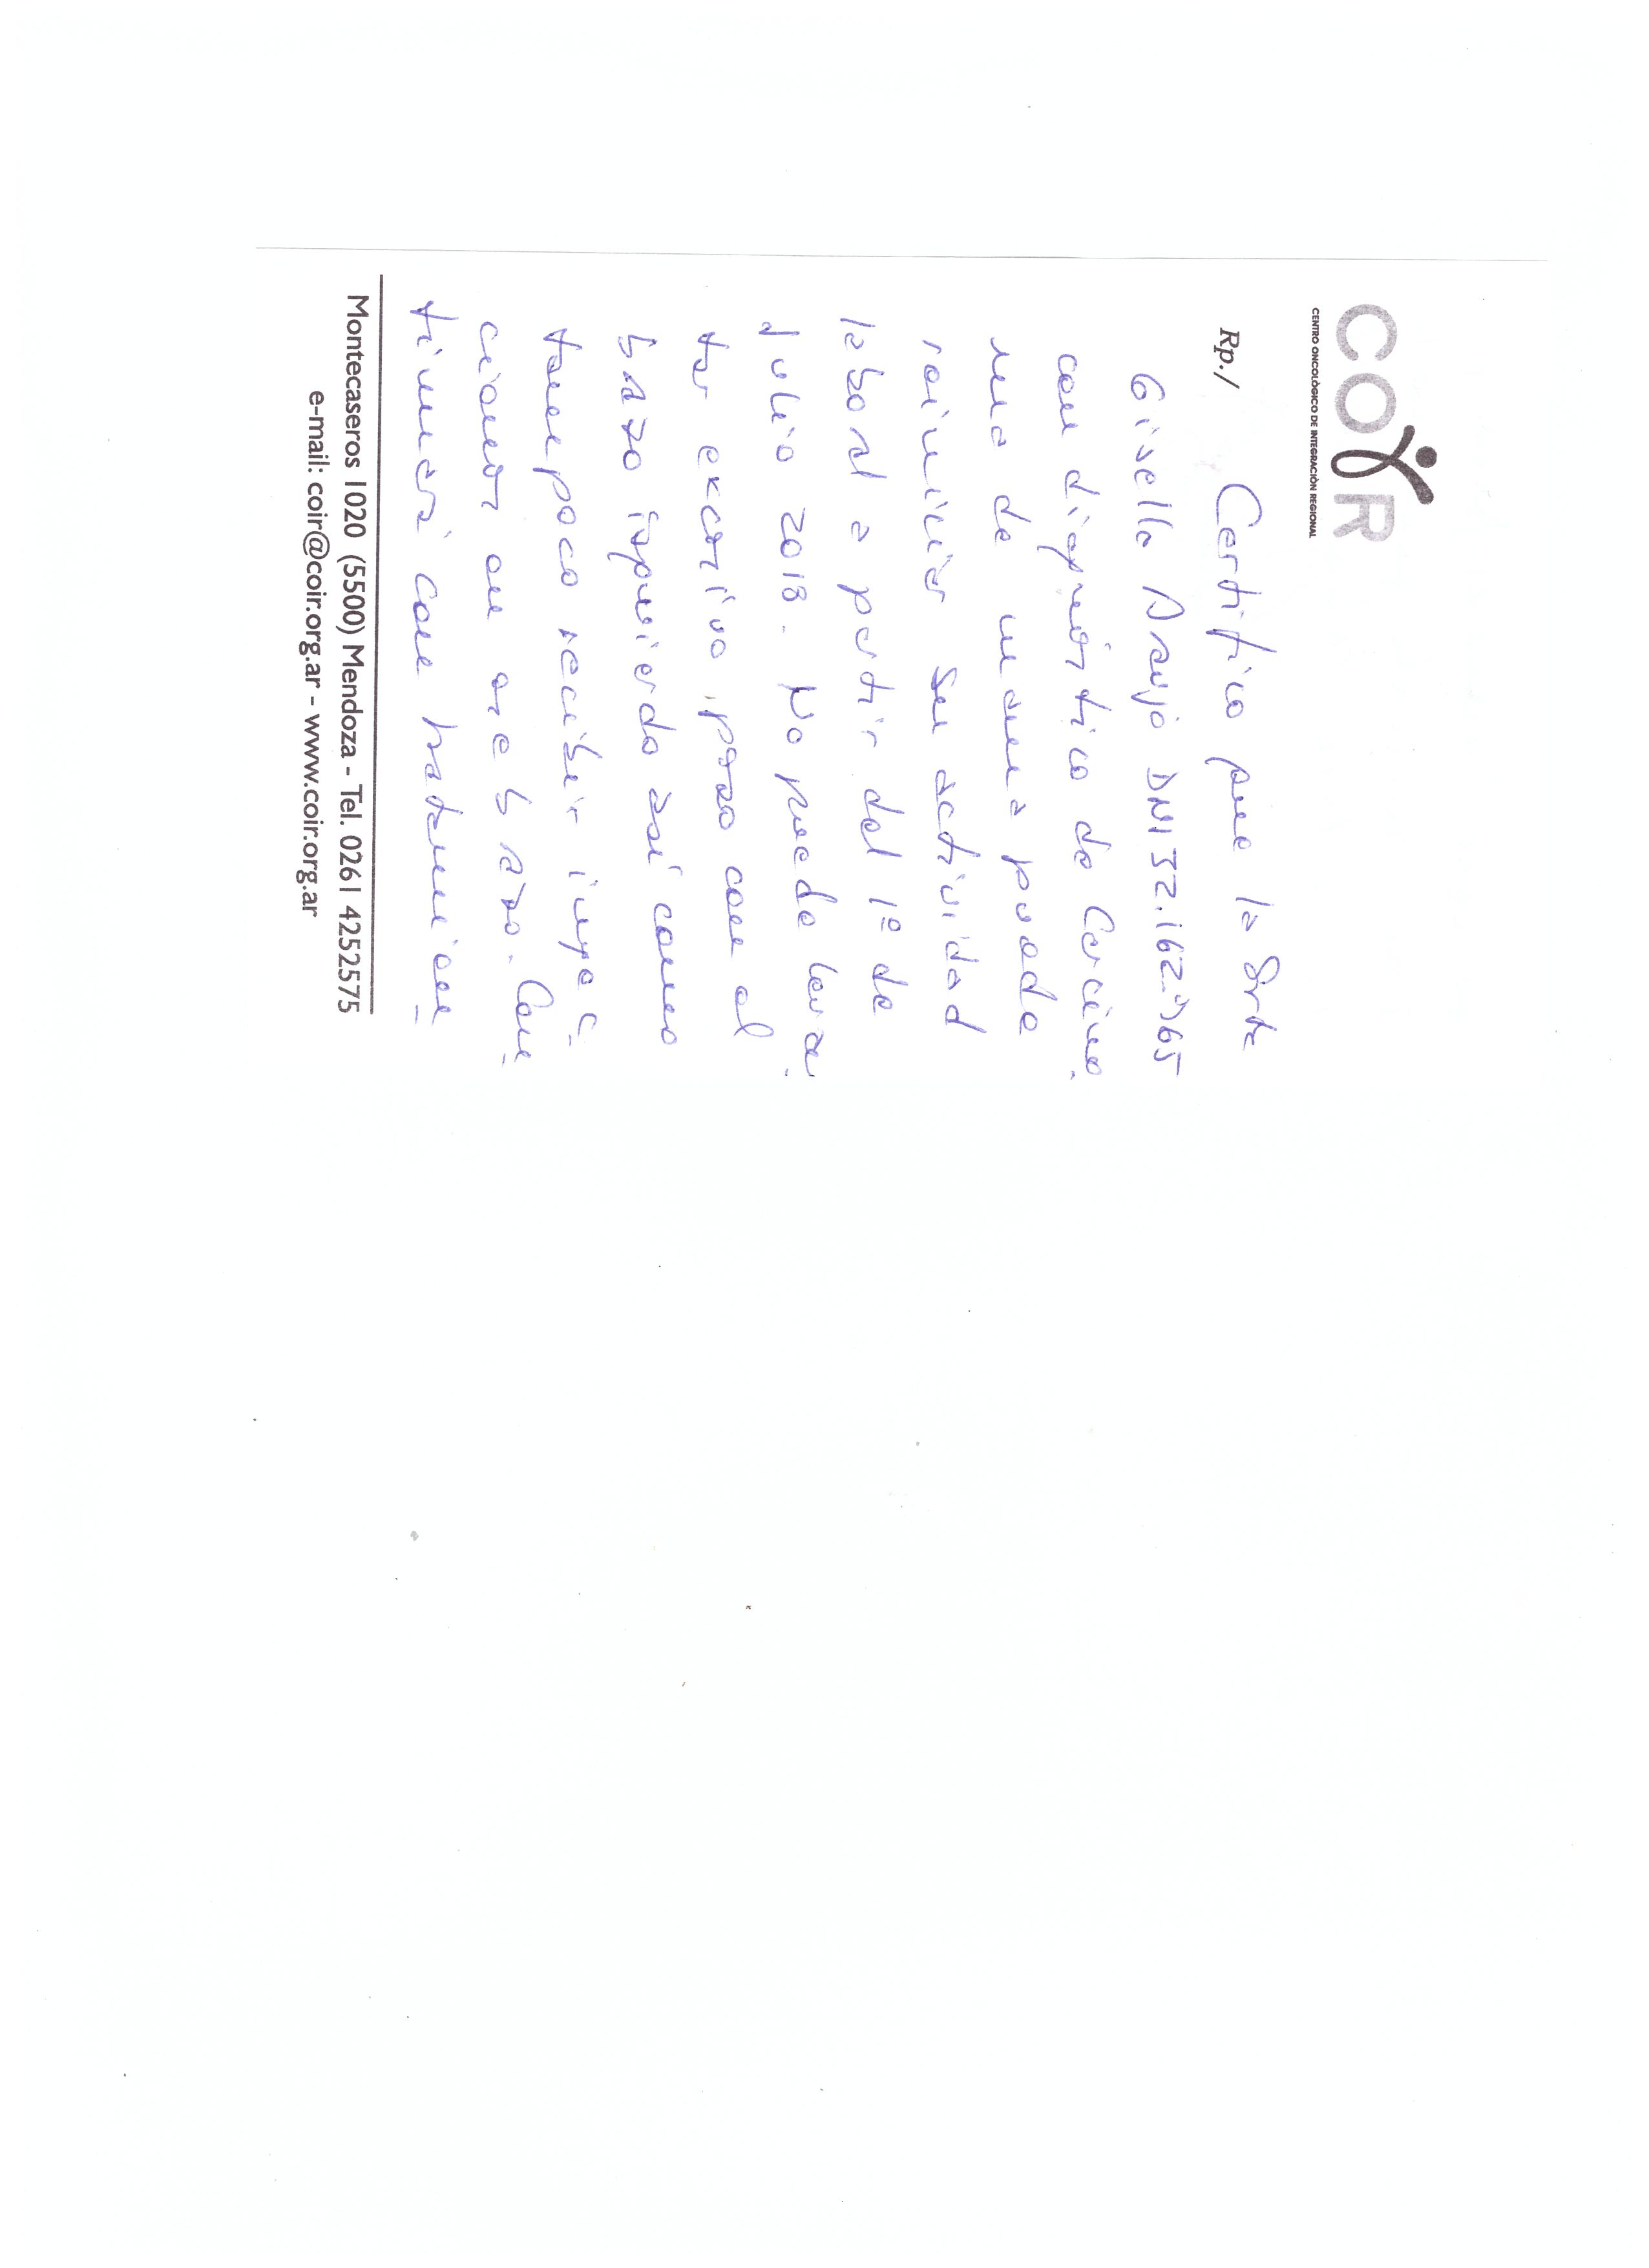 COIR
CENTRO ONCOLÓGICO DE INTEGRACIÓN REGIONAL
Rp./
Certifico que la Srta
Gisella Araujo DNI
con diagnóstico de Carcino-
ma de mama puede
reiniciar su actividad
laboral a partir del 1º de
Julio 2018. No puede levan-
tar excesivo peso con el
brazo izquierdo así como
tampoco recibir inyec-
ciones en ese brazo. Con-
tinuará con tratamien-
Montecaseros 1020 (5500) Mendoza - Tel. 0261 4252575
e-mail: coir@coir.org.ar - www.coir.org.ar